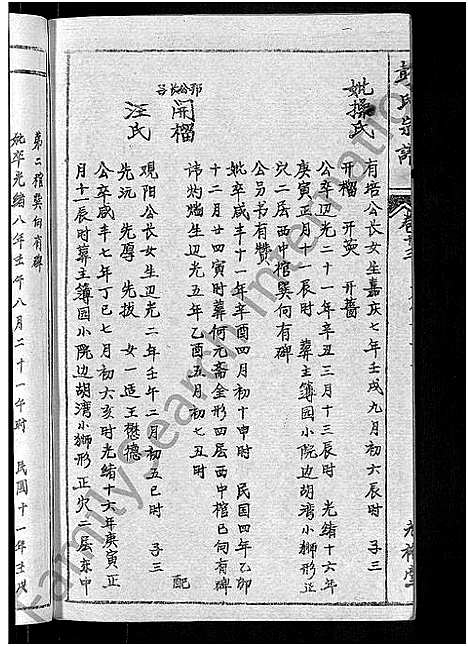 彭氏宗譜
卷十三
光裕堂
妣操氏
有培公長女生嘉庆七年壬戌九月初六辰时 子三
开榴 开英 开蔷
公卒道光二十一年辛丑三月十三辰时 光绪十六年
庚寅正月十一辰时 葬主簿园小院边胡湾小狮形正
穴二层西中棺巽向有碑
公另书有赞
妣卒咸丰十一年辛酉四月初十申时 民国四年乙卯
十二月廿四寅时葬何元斋金形四层西中棺巳向有碑
開榴
讳灼瑞生道光五年乙酉五月初七丑时 配
汪氏
覌阳公長女生道光二年壬午二月初五巳时 子三
先沅 先厚 先拔 女一适王懋德
公卒咸丰七年丁巳七月初六亥时光绪十六年庚寅正
月十一辰时葬主簿园小院边胡湾小狮形正穴二层东中
第二棺巽向有碑
妣卒光绪八年壬午八月二十一午时 民國十一年壬戌
Family Search International